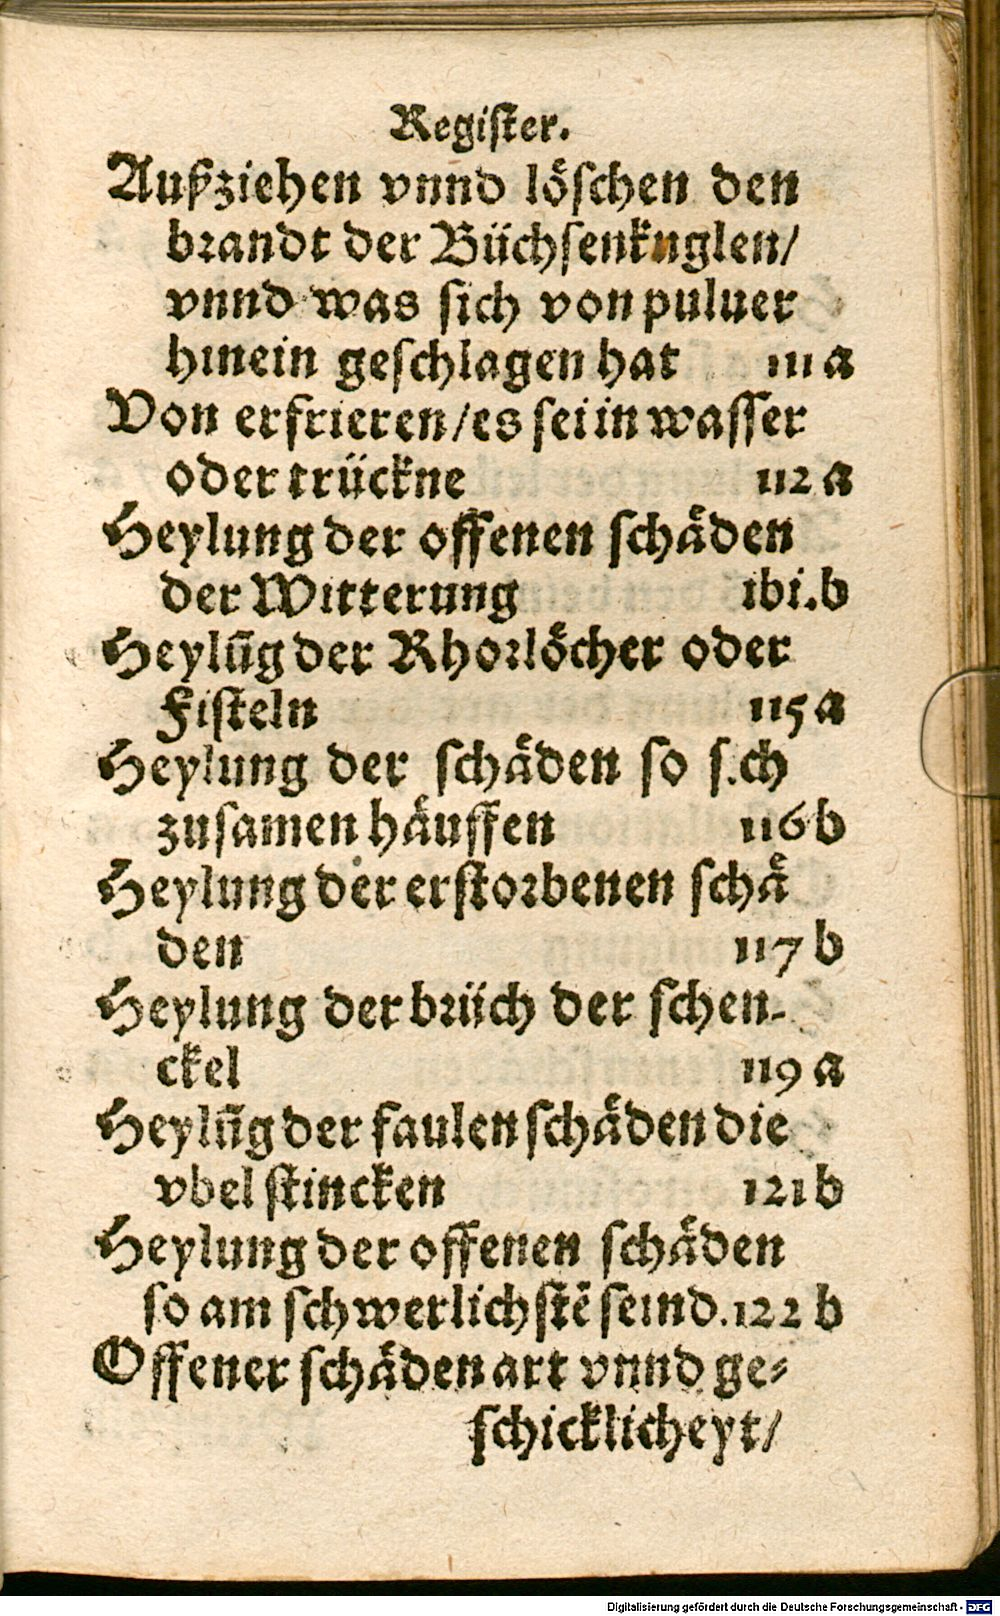 Register.
Außziehen vnnd löschen den
brandt der Büchsenkuglen/
vnnd was sich von puluer
hinein geschlagen hat 111 a
Von erfrieren/es sei in wasser
oder trückne 112 a
Heylung der offenen schäden
der Witterung ibi.b
Heylūg der Rhorlöcher oder
Fisteln 115 a
Heylung der schäden so s.ch
zusamen häuffen 116 b
Heylung der erstorbenen schä
den 117 b
Heylung der brüch der schen-
ckel 119 a
Heylūg der faulen schäden die
vbel stincken 121 b
Heylung der offenen schäden
so am schwerlichstē seind. 122 b
Offener schäden art vnnd ge-
schicklicheyt/
Digitalisierung gefördert durch die Deutsche Forschungsgemeinschaft - DFG